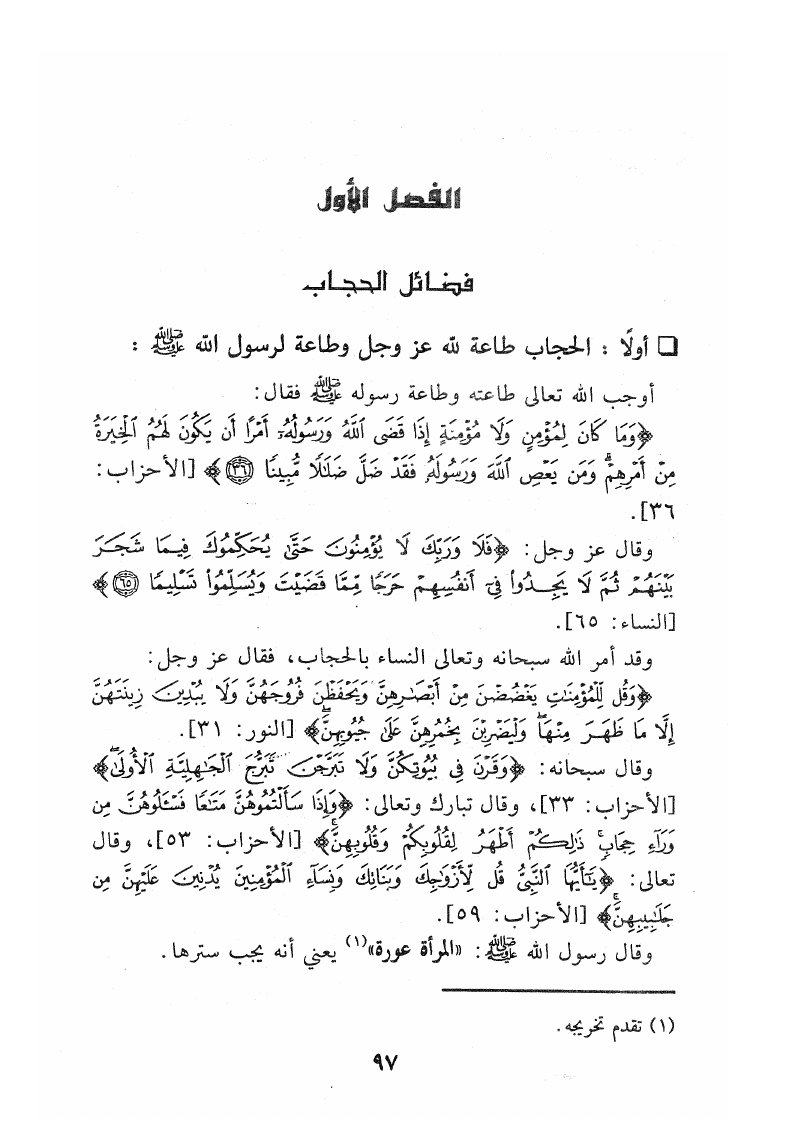 الفصل الأول
فضائل الحجاب
❑ أولًا : الحجاب طاعة لله عز وجل وطاعة لرسول الله ﷺ :
أوجب الله تعالى طاعته وطاعة رسوله ﷺ فقال:
﴿وَمَا كَانَ لِمُؤْمِنٍ وَلَا مُؤْمِنَةٍ إِذَا قَضَى ٱللَّهُ وَرَسُولُهُۥٓ أَمْرًا أَن يَكُونَ لَهُمُ ٱلْخِيَرَةُ
مِنْ أَمْرِهِمْ ۗ وَمَن يَعْصِ ٱللَّهَ وَرَسُولَهُۥ فَقَدْ ضَلَّ ضَلَٰلًا مُّبِينًا ٣٦﴾ [الأحزاب:
٣٦].
وقال عز وجل: ﴿فَلَا وَرَبِّكَ لَا يُؤْمِنُونَ حَتَّىٰ يُحَكِّمُوكَ فِيمَا شَجَرَ
بَيْنَهُمْ ثُمَّ لَا يَجِدُوا۟ فِىٓ أَنفُسِهِمْ حَرَجًا مِّمَّا قَضَيْتَ وَيُسَلِّمُوا۟ تَسْلِيمًا ٦٥﴾
[النساء: ٦٥].
وقد أمر الله سبحانه وتعالى النساء بالحجاب، فقال عز وجل:
﴿وَقُل لِّلْمُؤْمِنَٰتِ يَغْضُضْنَ مِنْ أَبْصَٰرِهِنَّ وَيَحْفَظْنَ فُرُوجَهُنَّ وَلَا يُبْدِينَ زِينَتَهُنَّ
إِلَّا مَا ظَهَرَ مِنْهَا ۖ وَلْيَضْرِبْنَ بِخُمُرِهِنَّ عَلَىٰ جُيُوبِهِنَّ ۖ﴾ [النور: ٣١].
وقال سبحانه: ﴿وَقَرْنَ فِى بُيُوتِكُنَّ وَلَا تَبَرَّجْنَ تَبَرُّجَ ٱلْجَٰهِلِيَّةِ ٱلْأُولَىٰ ۖ﴾
[الأحزاب: ٣٣]، وقال تبارك وتعالى: ﴿وَإِذَا سَأَلْتُمُوهُنَّ مَتَٰعًا فَسْـَٔلُوهُنَّ مِن
وَرَآءِ حِجَابٍ ۚ ذَٰلِكُمْ أَطْهَرُ لِقُلُوبِكُمْ وَقُلُوبِهِنَّ ۚ﴾ [الأحزاب: ٥٣]، وقال
تعالى: ﴿يَٰٓأَيُّهَا ٱلنَّبِىُّ قُل لِّأَزْوَٰجِكَ وَبَنَاتِكَ وَنِسَآءِ ٱلْمُؤْمِنِينَ يُدْنِينَ عَلَيْهِنَّ مِن
جَلَٰبِيبِهِنَّ ۚ﴾ [الأحزاب: ٥٩].
وقال رسول الله ﷺ: «المرأة عورة»(١) يعني أنه يجب سترها.
(١) تقدم تخريجه.
٩٧